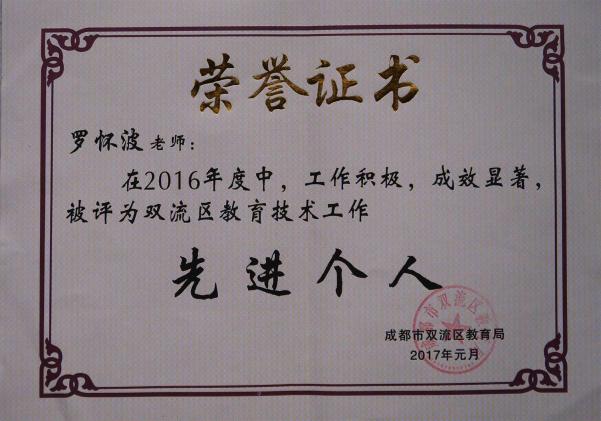 荣誉证书
罗怀波老师：
在2016年度中，工作积极，成效显著，
被评为双流区教育技术工作
先进个人
成都市双流区教育局
2017年元月